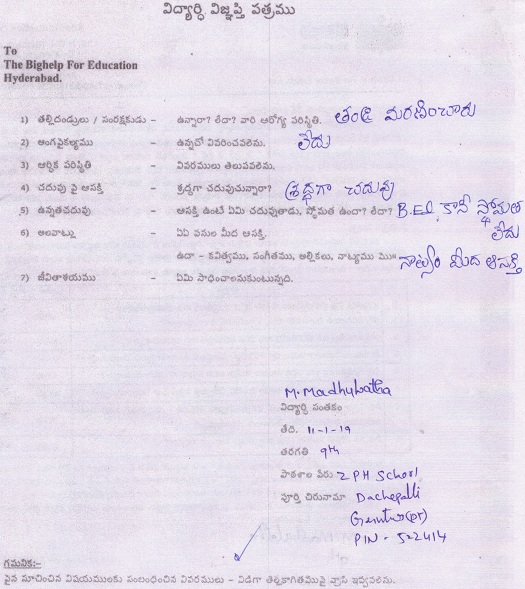 విద్యార్ధి విజ్ఞప్తి పత్రము
To
The Bighelp For Education
Hyderabad.
1) తల్లిదండ్రులు / సంరక్షకుడు - ఉన్నారా? లేదా? వారి ఆరోగ్య పరిస్థితి. తండ్రి మరణించారు
2) అంగవైకల్యము - ఉన్నచో వివరించవలెను. లేదు
3) ఆర్ధిక పరిస్థితి - వివరములు తెలుపవలెను.
4) చదువు పై ఆసక్తి - శ్రద్ధగా చదువుచున్నారా? శ్రద్ధగా చదువు
5) ఉన్నతచదువు - ఆసక్తి ఉంటే ఏమి చదువుతాడు, స్థోమత ఉందా? లేదా? B.Ed, కానీ స్థోమత లేదు
6) అలవాట్లు - ఏఏ పనుల మీద ఆసక్తి.
ఉదా - కవిత్వము, సంగీతము, అల్లికలు, నాట్యము మొ॥ నాట్యం మీద ఆసక్తి
7) జీవితాశయము - ఏమి సాధించాలనుకుంటున్నది.
M. Madhulatha
విద్యార్ధి సంతకం
తేది. 11-1-19
తరగతి 9th
పాఠశాల పేరు ZPH School
పూర్తి చిరునామా Dachepalli
Guntur(Dt)
PIN - 522414
గమనిక:-
పైన సూచించిన విషయములకు సంబంధించిన వివరములు - విడిగా తెల్లకాగితముపై వ్రాసి ఇవ్వవలెను.